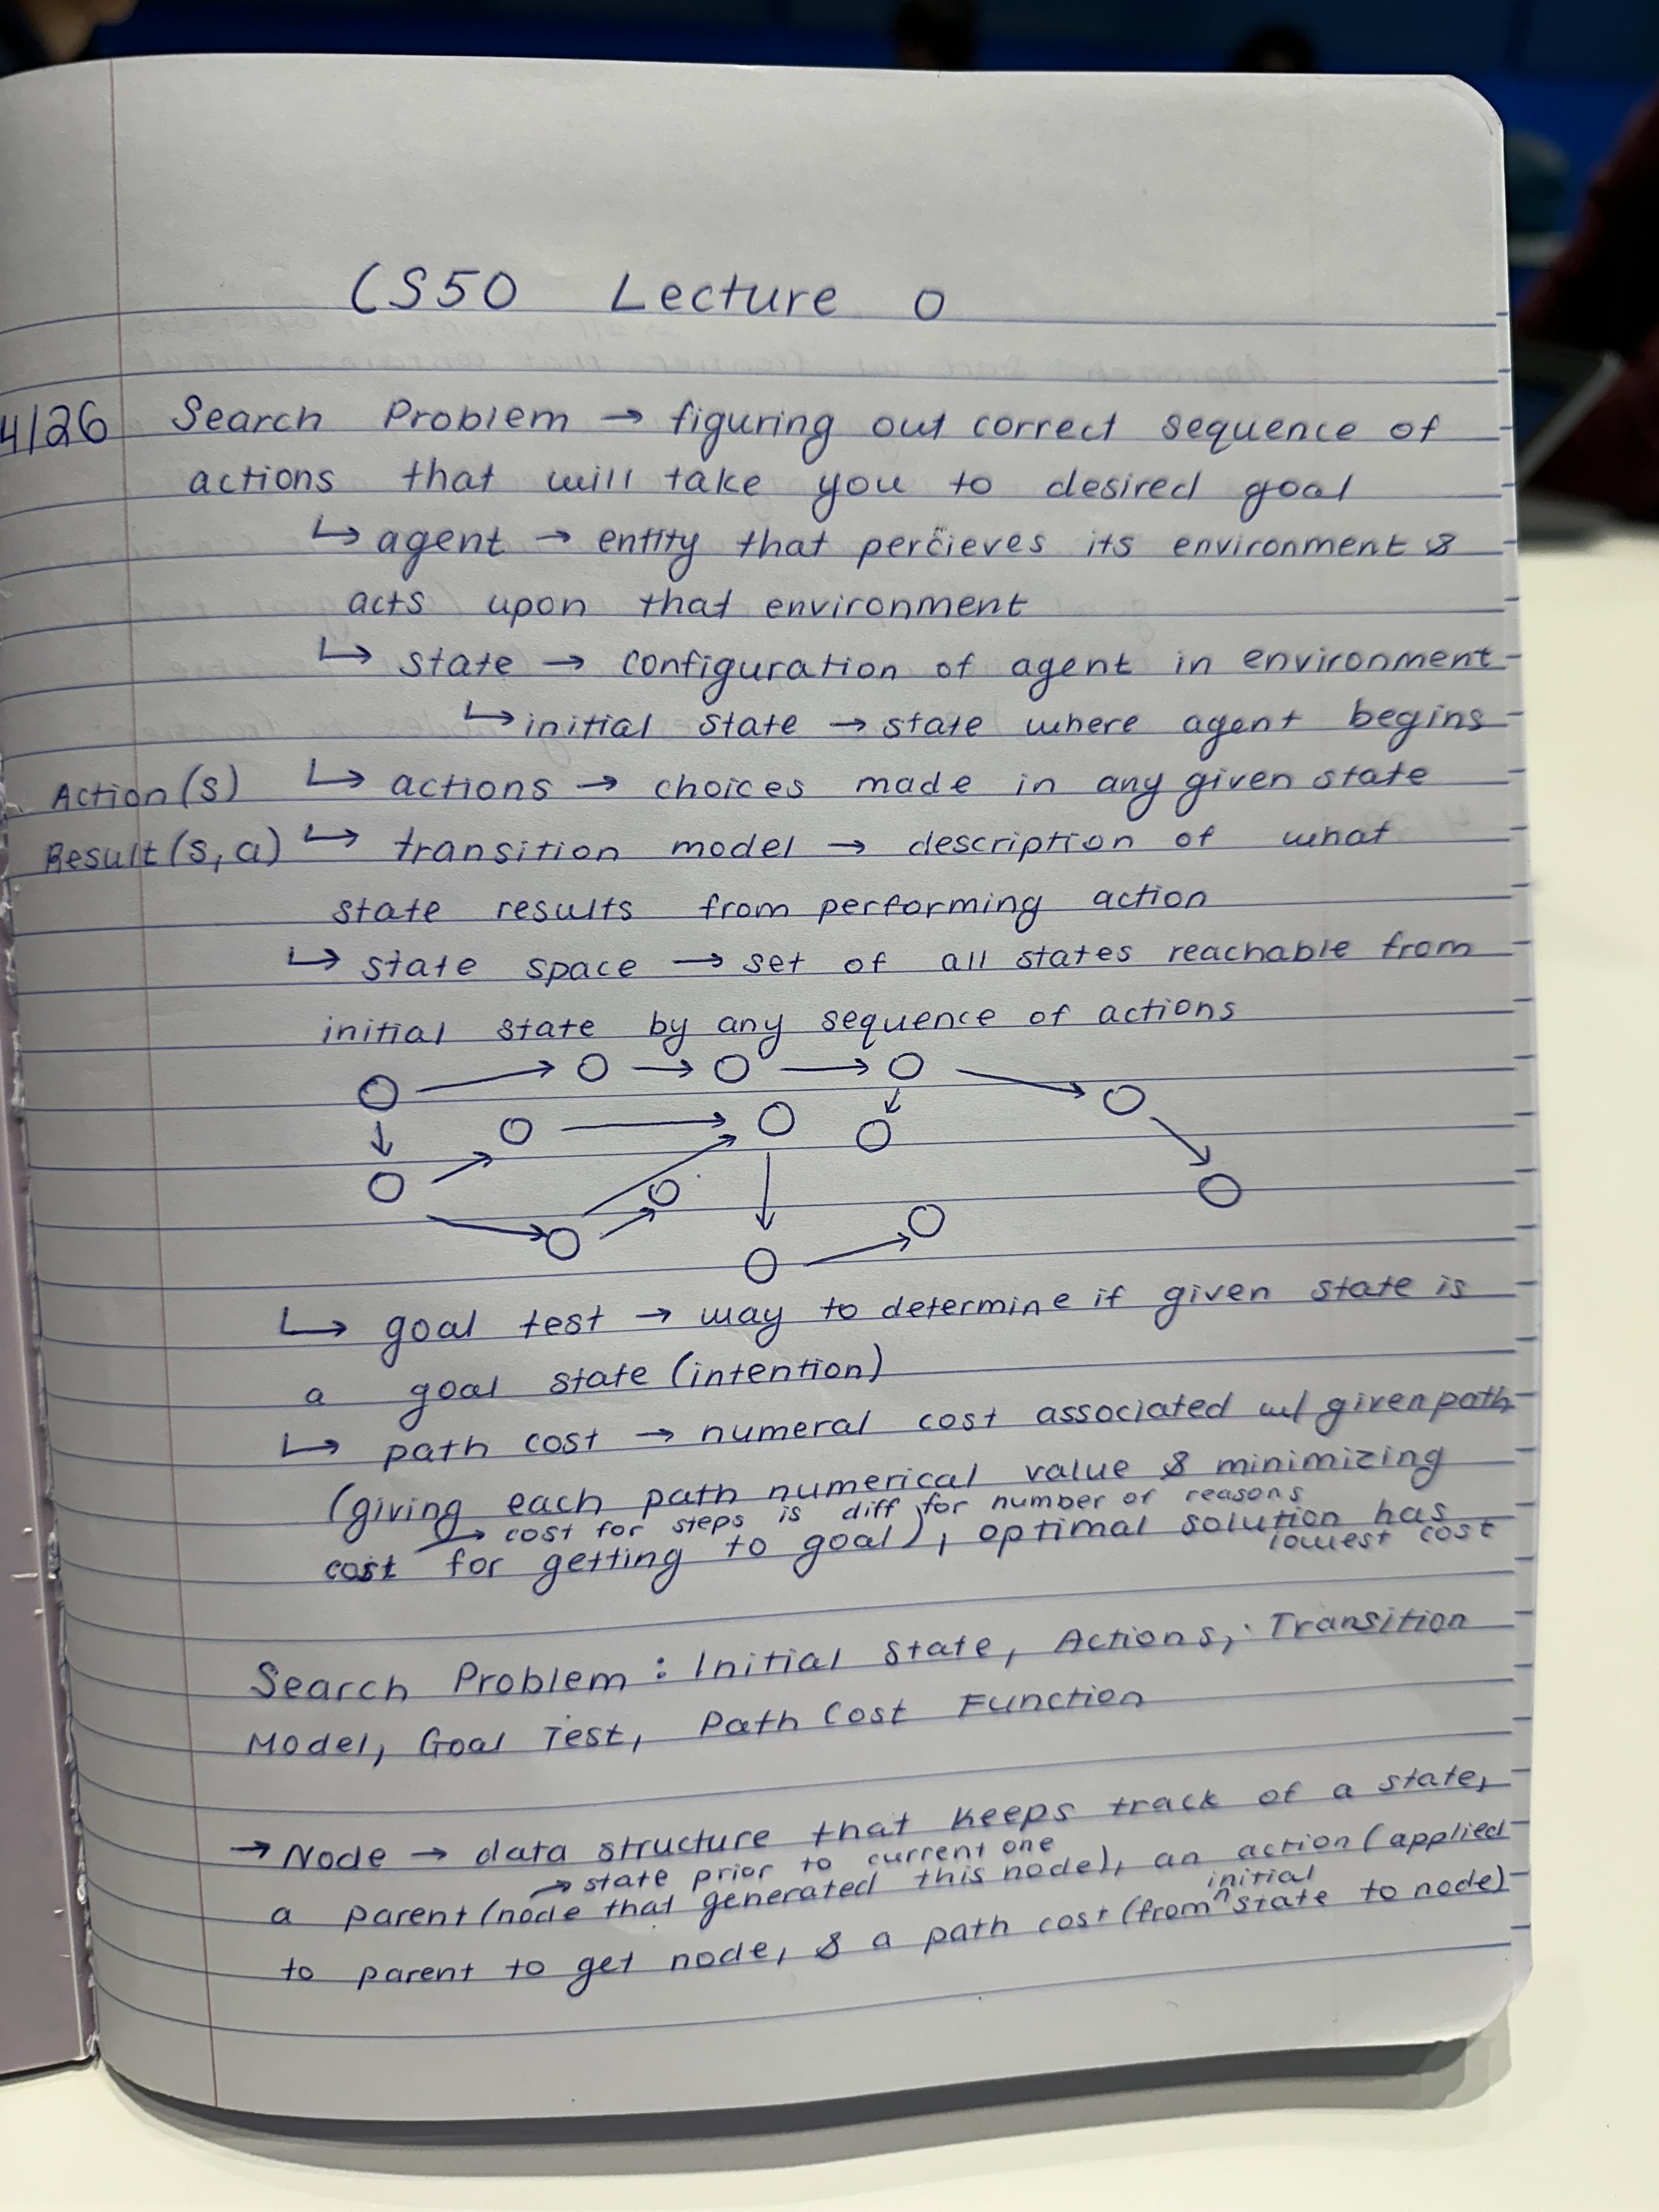 CS50 Lecture 0
4/26 Search Problem → figuring out correct sequence of
actions that will take you to desired goal
↳ agent → entity that percieves its environment &
acts upon that environment
↳ state → configuration of agent in environment
↳ initial state → state where agent begins
Action(s) ↳ actions → choices made in any given state
Result(s, a) ↳ transition model → description of what
state results from performing action
↳ state space → set of all states reachable from
initial state by any sequence of actions
↳ goal test → way to determine if given state is
a goal state (intention)
↳ path cost → numeral cost associated w/ given path
(giving each path numerical value & minimizing
→ cost for steps is diff for number of reasons
cost for getting to goal), optimal solution has
lowest cost
Search Problem: Initial State, Actions, Transition
Model, Goal Test, Path Cost Function
→ Node → data structure that keeps track of a state,
→ state prior to current one
a parent (node that generated this node), an action (applied
initial
to parent to get node, & a path cost (from ^ state to node)